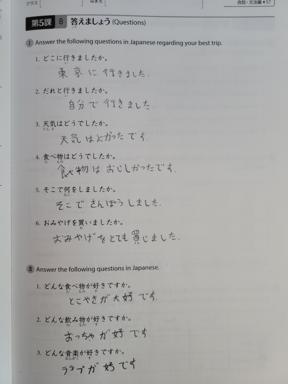 第5課 8 答えましょう (Questions)
Ⅰ Answer the following questions in Japanese regarding your best trip.
1. どこに行きましたか。
東京に行きました.
2. だれと行きましたか。
自分で行きました
3. 天気はどうでしたか。
天気はよかったです.
4. 食べ物はどうでしたか。
食べ物はおしかったです.
5. そこで何をしましたか。
そこでさんぽうしました.
6. おみやげを買いましたか。
おみやげをとても買じました.
Ⅱ Answer the following questions in Japanese.
1. どんな食べ物が好きですか。
が大好です.
2. どんな飲み物が好きですか。
おっちゃが好です
3. どんな音楽が好きですか。
が好です